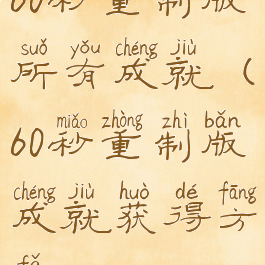 60秒重制版
suǒ yǒu chéng jiù
所有成就(
miǎo zhòng zhì bǎn
60秒重制版
chéng jiù huò dé fāng
成就获得方
fǎ